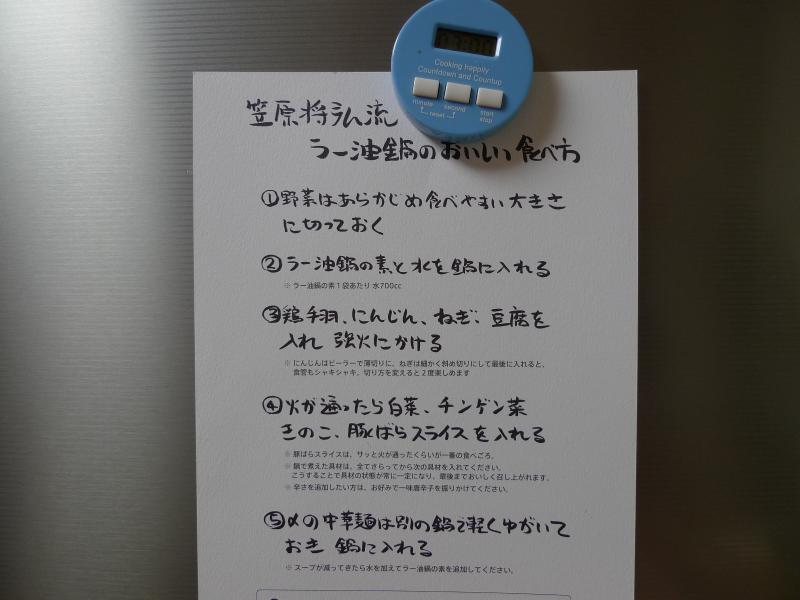 Cooking happily
Countdown and Countup
minute
second
start
stop
reset
笠原将弘流
ラー油鍋のおいしい食べ方
①野菜はあらかじめ食べやすい大きさ
に切っておく
②ラー油鍋の素と水を鍋に入れる
※ ラー油鍋の素1袋あたり 水700cc
③鶏手羽、にんじん、ねぎ、豆腐を
入れ 強火にかける
※ にんじんはピーラーで薄切りに、ねぎは細かく斜め切りにして最後に入れると、
食管もシャキシャキ。切り方を変えると2度楽しめます
④火が通ったら白菜、チンゲン菜
きのこ、豚ばらスライスを入れる
※ 豚ばらスライスは、サッと火が通ったくらいが一番の食べごろ。
※ 鍋で煮えた具材は、全てさらってから次の具材を入れてください。
こうすることで具材の状態が常に一定になり、最後までおいしく召し上がれます。
※ 辛さを追加したい方は、お好みで一味唐辛子を振りかけてください。
⑤〆の中華麺は別の鍋で軽くゆがいて
おき 鍋に入れる
※ スープが減ってきたら水を加えてラー油鍋の素を追加してください。